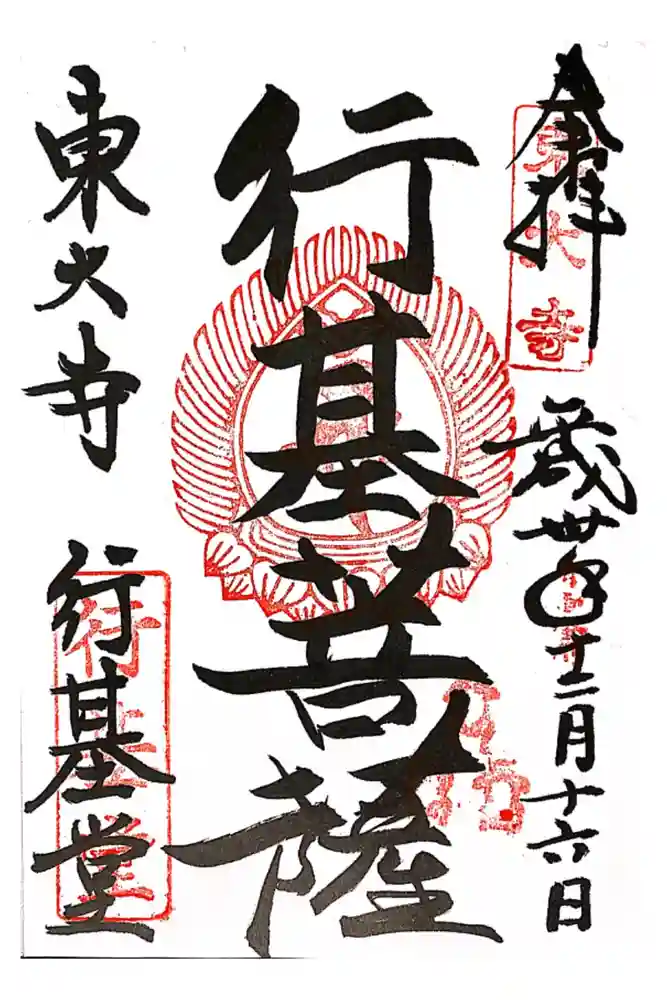 奉拝
平成丗年十二月十六日
行基菩薩
東大寺
行基堂
東大寺
行基堂